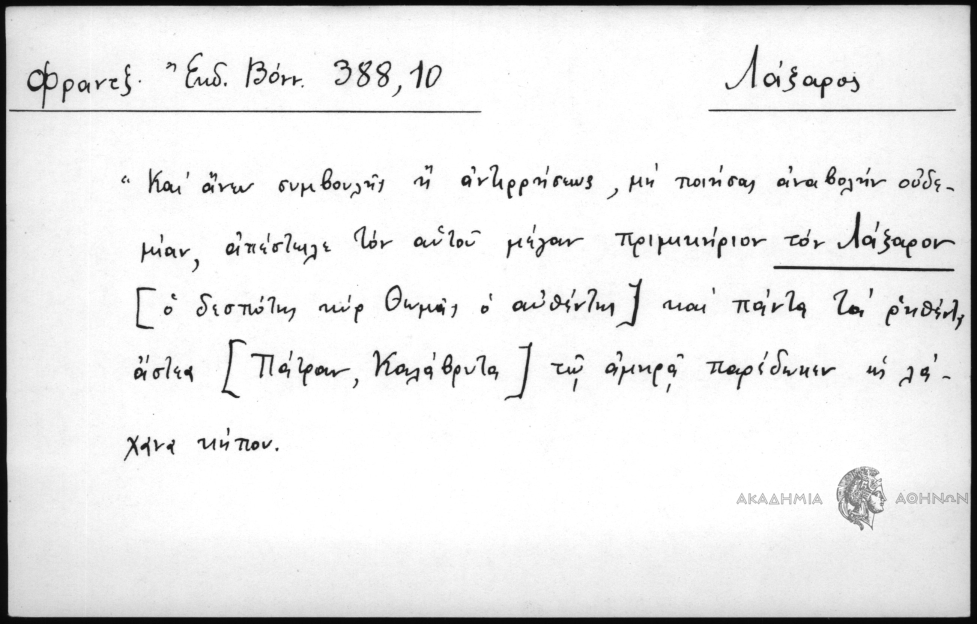 Φραντζ. Ἔκδ. Βόνν. 388,10
Λάξαρος
“Καί ἄνευ συμβουλῆς ἤ ἀντιρρήσεως, μή ποιήσας ἀναβολήν οὐδε-
μίαν, ἀπέστειλε τόν αὑτοῦ μέγαν πριμικήριον τόν Λάξαρον
[ὁ δεσπότης κύρ Θωμᾶς ὁ αὐθέντης] καί πάντα τά ῥηθέντα
ἄστεα [Πάτραν, Καλάβρυτα] τῷ ἀμηρᾷ παρέδωκεν ὡς λά-
χανα κήπου.
ΑΚΑΔΗΜΙΑ ΑΘΗΝΩΝ